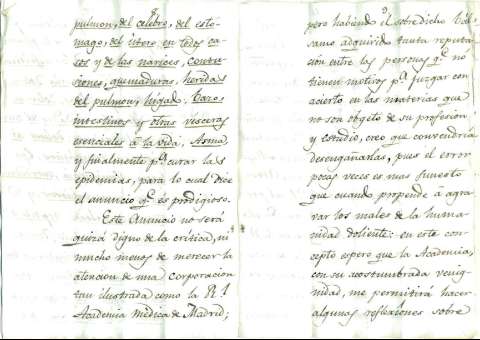 pulmon, del celebro, del esto-
mago, del útero en todos ca-
sos y de las narices, contu-
siones, quemaduras, heridas
del pulmon, hígado, Bazo
intestinos y otras vísceras
esenciales á la vida, Asma,
y finalmente pª curar las
epidemias, para lo cual dice
el anuncio qᵉ es prodigioso.
Este Anuncio no será
quizá digno de la crítica, ni
mucho menos de merecer la
atencion de una corporacion
tan ilustrada como la Rˡ
Academia Médica de Madrid;
pero habiendo el sobredicho Bál-
samo adquirido tanta reputa-
ción entre las personas qᵉ no
tienen motivos pª juzgar con
acierto en las materias que
no son objeto de su profesion
y estudio, creo que convendria
desengañarlas, pues el error
pocas veces es mas funesto
que cuando propende á agra-
var los males de la huma-
nidad doliente: en este con-
cepto espero que la Academia,
con su acostumbrada venig-
nidad, me permitirá hacer
algunas reflexiones sobre